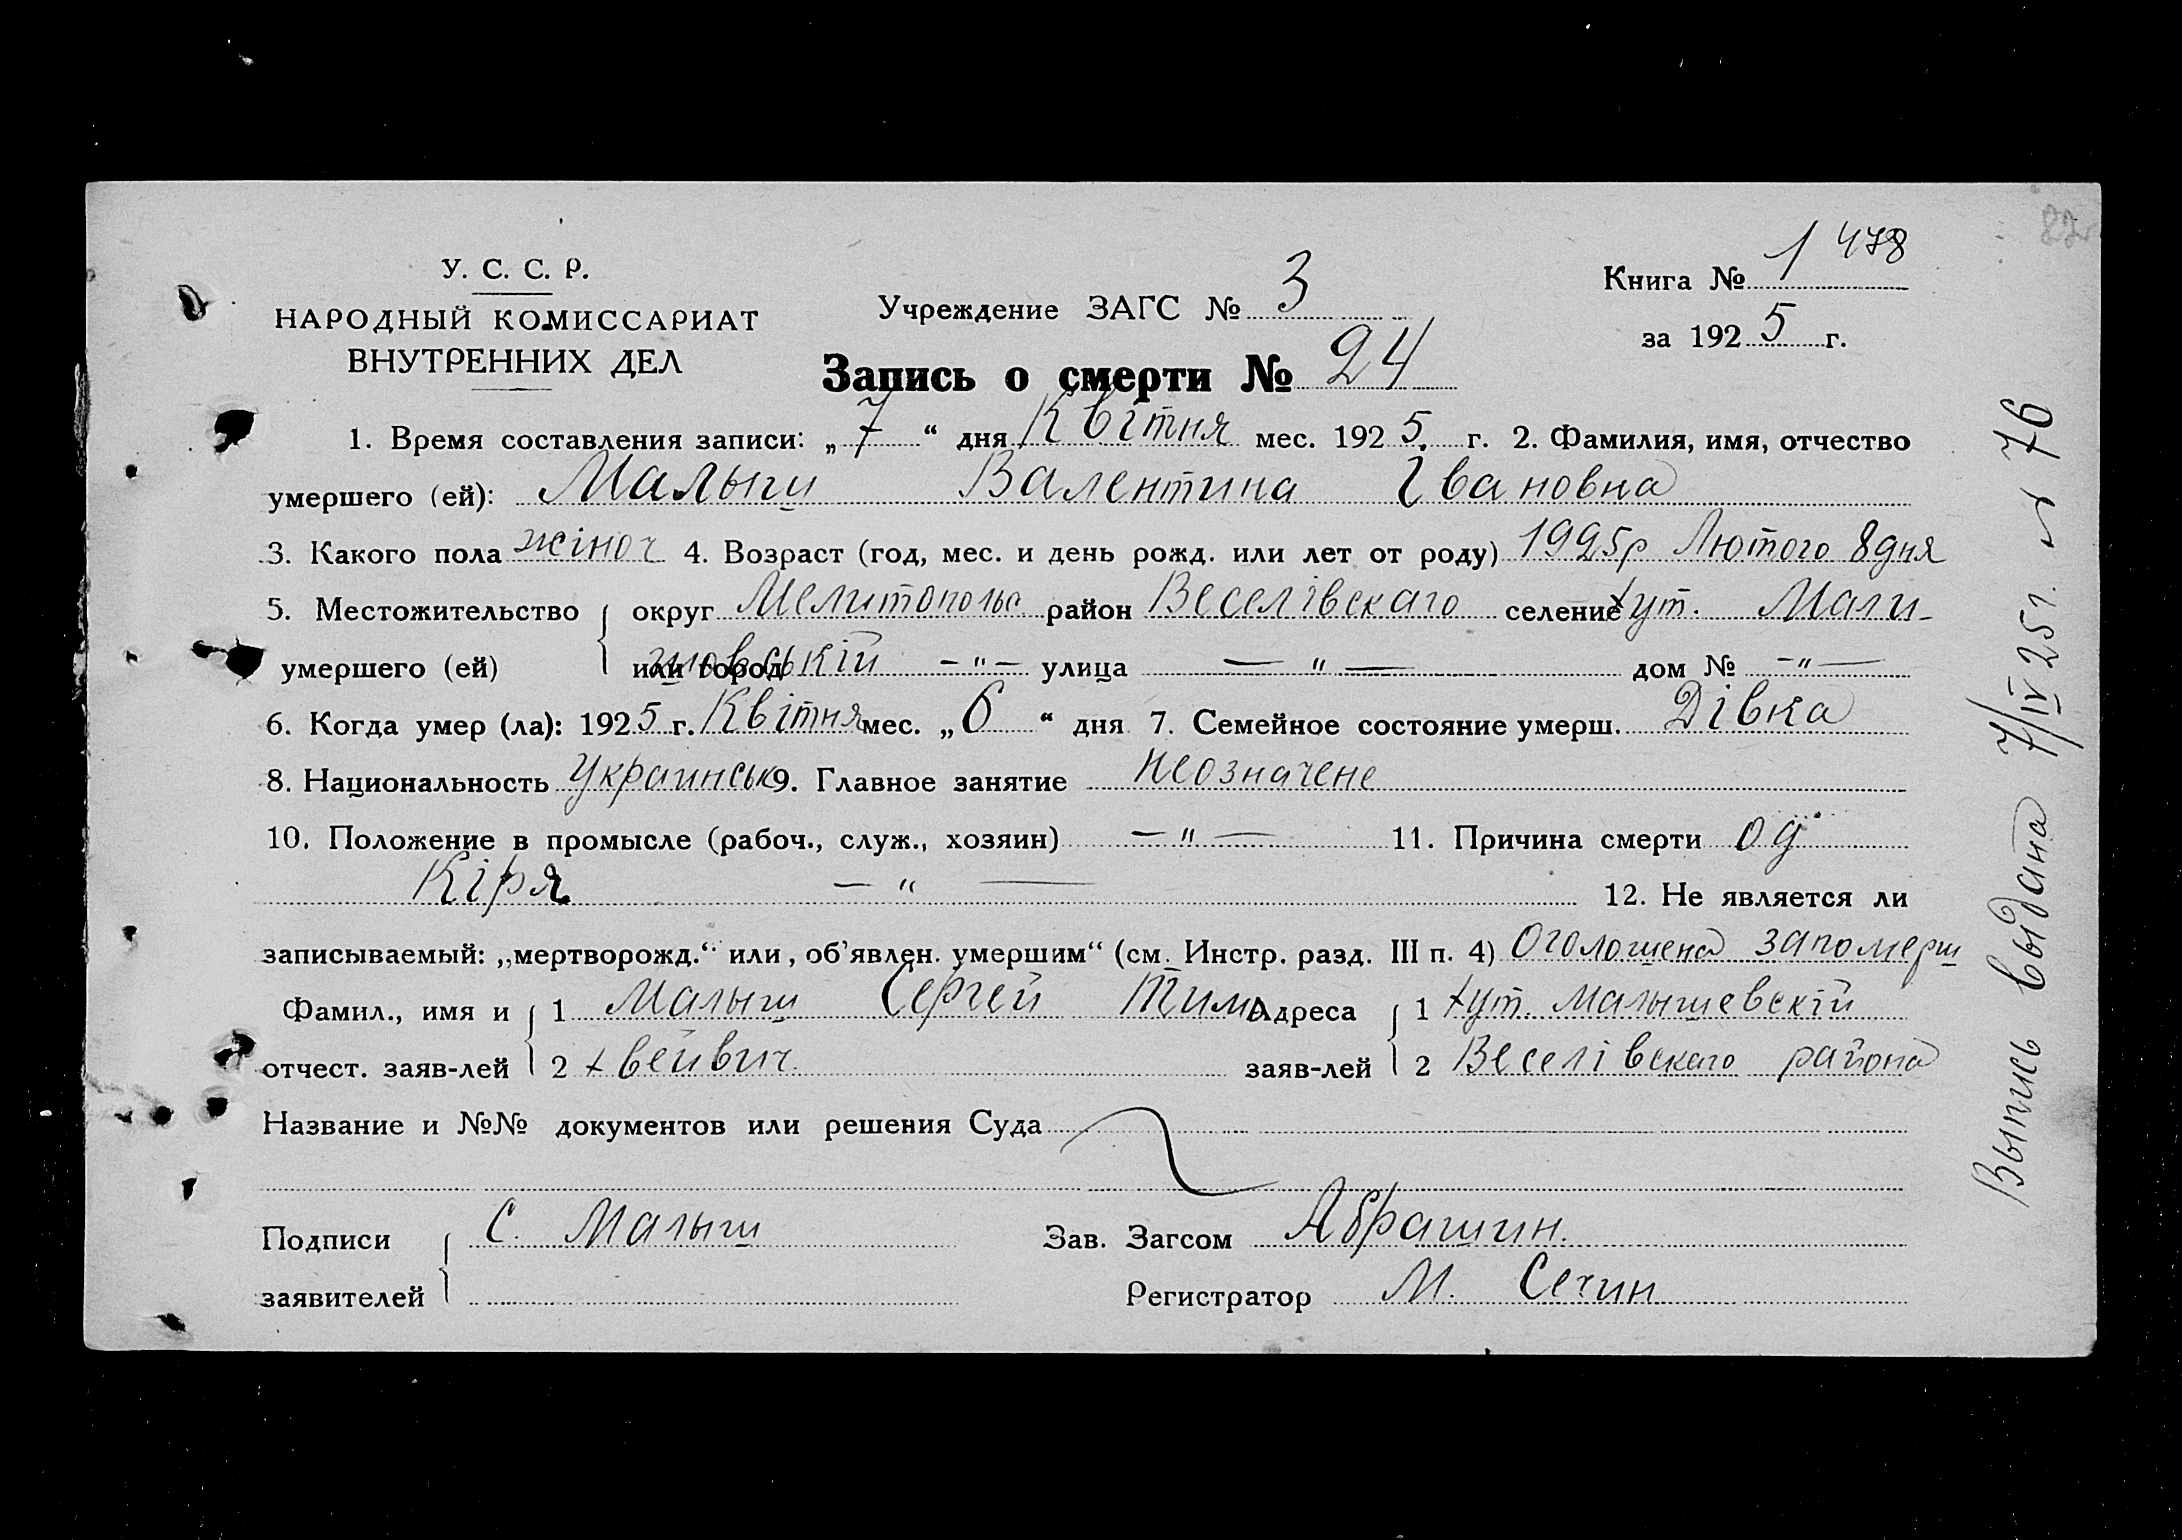 У. С. С. Р.
НАРОДНЫЙ КОМИССАРИАТ
ВНУТРЕННИХ ДЕЛ
Учреждение ЗАГС № 3
Книга № 1 478
за 1925 г.
Запись о смерти № 24
1. Время составления записи: „7“ дня Квітня мес. 1925. г. 2. Фамилия, имя, отчество
умершего (ей): Малыш Валентина Івановна
3. Какого пола жіноч 4. Возраст (год, мес. и день рожд. или лет от роду) 1925р Лютого 8 дня
5. Местожительство округ Мелитополь район Веселівскаго селение хут. Мали-
умершего (ей) или город шовській — " — улица — " — дом № — " —
6. Когда умер (ла): 1925 г. Квітня мес. „6“ дня 7. Семейное состояние умерш. Дівка
8. Национальность Украинськ 9. Главное занятие Неозначене
10. Положение в промысле (рабоч., служ., хозяин) — " — 11. Причина смерти од
Кіря — " — 12. Не является ли
записываемый: „мертворожд.“ или, об'явлен. умершим“ (см. Инстр. разд. III п. 4) Оголошена запомерш
Фамил., имя и 1 Малыш Сергей Тимо Адреса 1 хут. Малышевскій
отчест. заяв-лей 2 хвейвич. заяв-лей 2 Веселівскаго района
Название и №№ документов или решения Суда
Подписи С. Малыш Зав. Загсом Абрашин.
заявителей Регистратор М. Сечин
Выпись выдана 7/IV 25 г. № 76